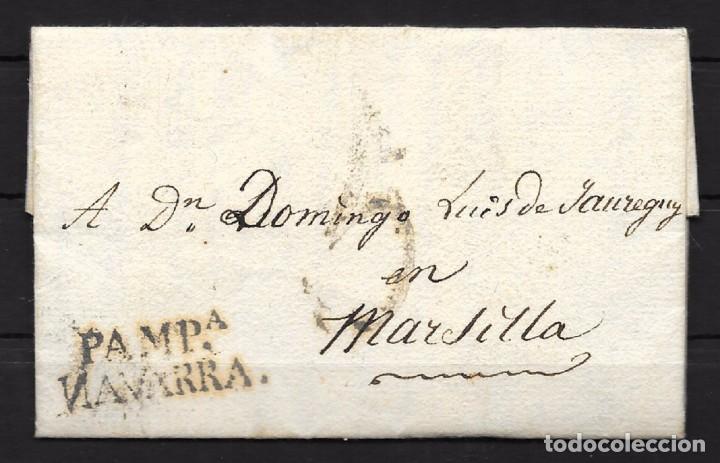 A Dn. Domingo Luis de Jaureguy
en
Marsilla
PAMP.A
NAVARRA.
todocoleccion.net